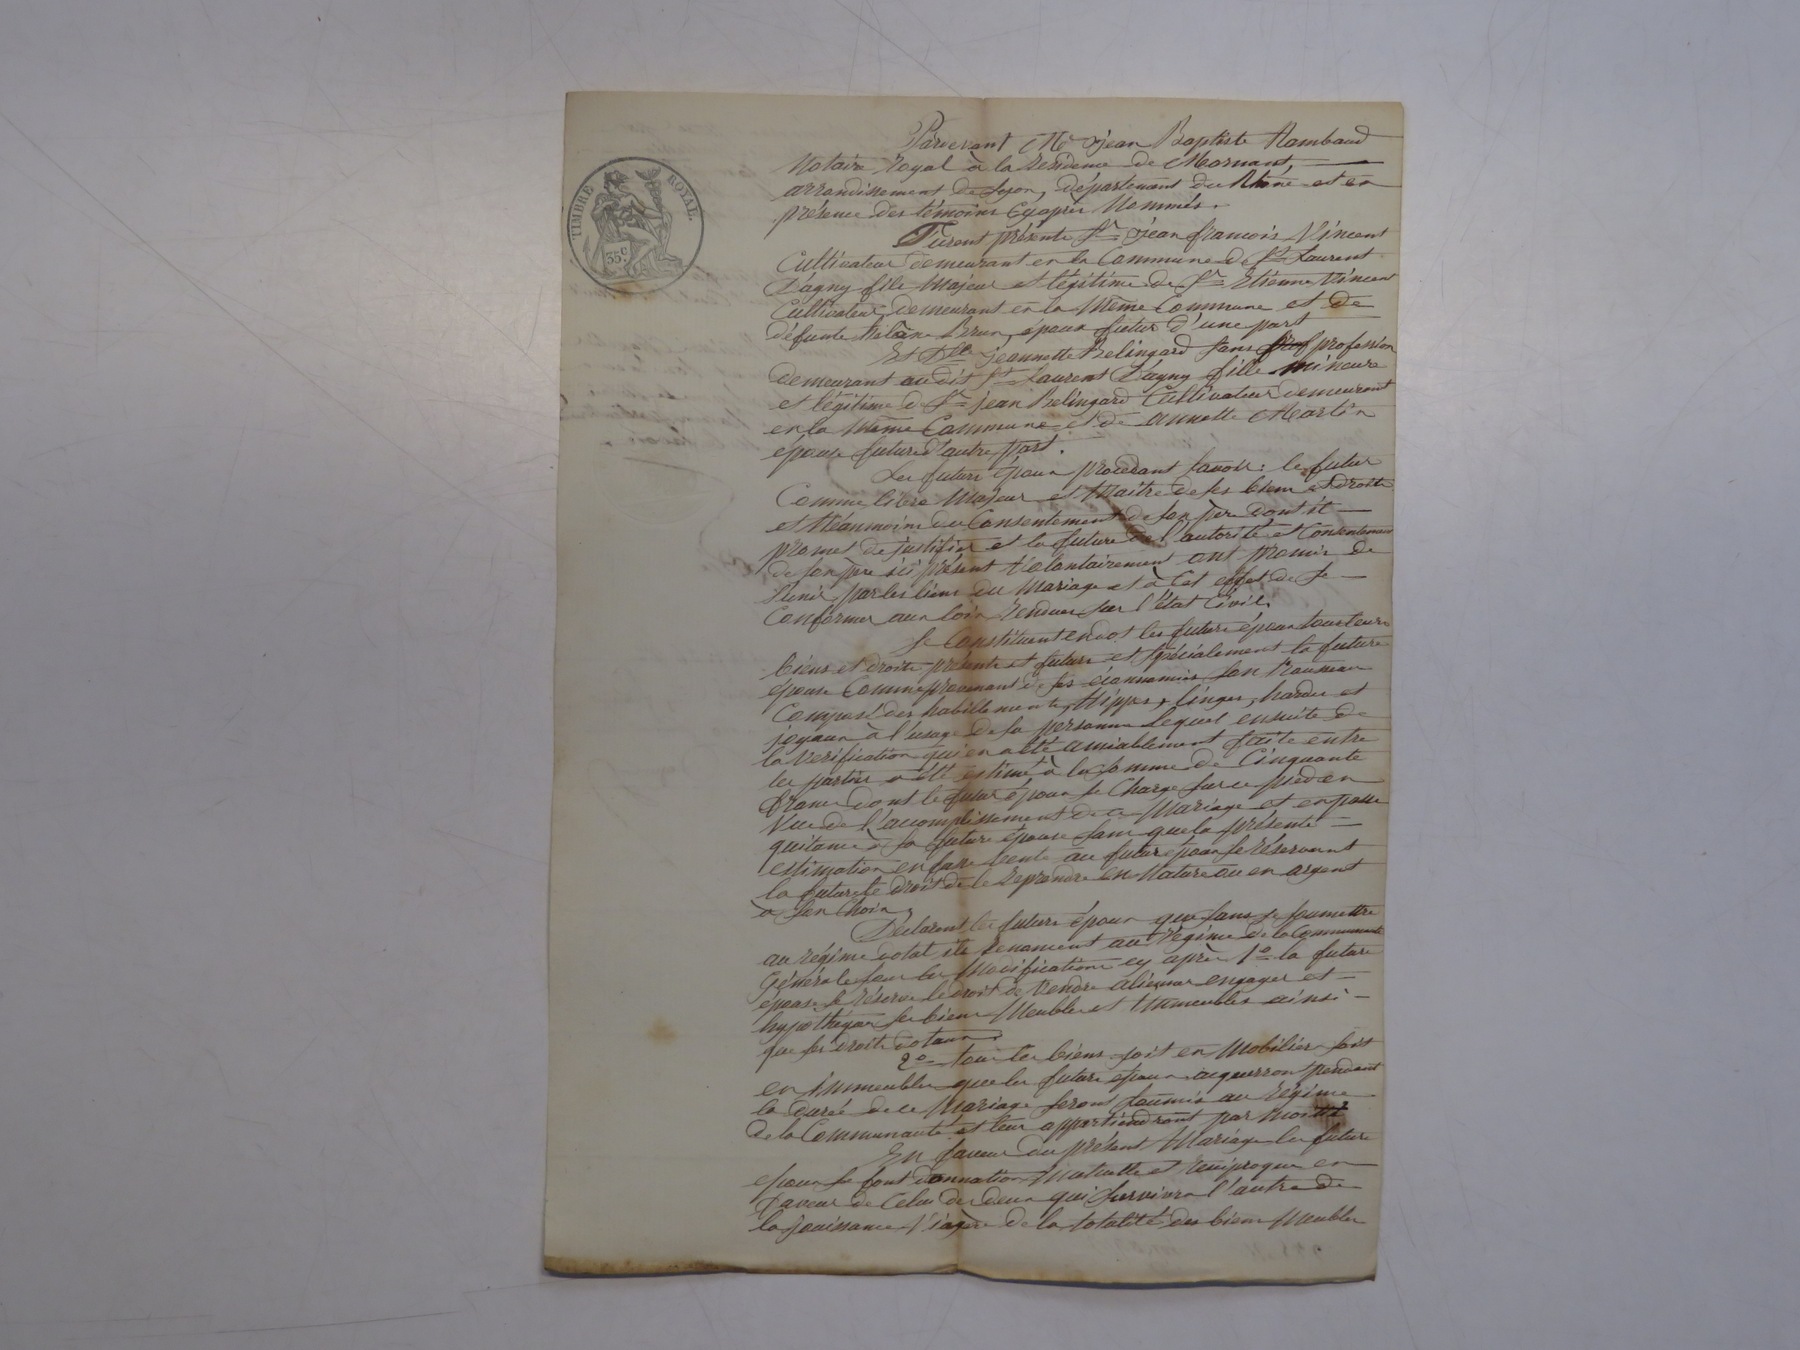 TIMBRE ROYAL.
35 c
Pardevant Me Jean Baptiste Rambaud
Notaire Royal à la résidence de Mornant,
arrondissement de Lyon, département du Rhône et en
présence des témoins Cyaprès Nommés.
Furent présents Sr Jean françois Vincent
Cultivateur demeurant en la Commune de St Laurent
D'agny fils Majeur et légitime de Sr Etienne Vincent
Cultivateur demeurant en la Même Commune et de
défunte Brun, époux futur d'une part
Et Dlle jeannette Relingard sans prof profession
demeurant audit St Laurent D'agny fille mineure
et légitime de Sr jean Relingard Cultivateur demeurant
en la même Commune et de annette Martin
épouse future d'autre part.
Les futurs époux procédant savoir: le futur
Comme libre Majeur et Maitre de ses biens et droits
et Néanmoins du Consentement de son père dont il
promet de justifier et la future de l'autorité et Consentement
de son père ici présent Volontairement ont promis de
S'unir par les liens du Mariage et à Cet effet de se
Conformer aux loix rendues sur l'état Civil.
Se Constituent en dot les futurs époux tous leurs
biens et droits présents et futurs et spécialement la future
épouse Comme provenant de ses économies son trousseau
Composé des habillements, Nippes, linges, hardes et
joyaux à l'usage de sa personne lequel ensuite de
la Vérification qui en a été amiablement faite entre
les parties a été estimé à la somme de Cinquante
francs dont le futur époux se Charge sur ce pied en
Vue de l'accomplissement de ce Mariage et en passe
quitance à la future épouse sans que la présente
estimation en fasse Vente au futur époux se réservant
la future le droit de le reprendre en Nature ou en argent
à son Choix.
Déclarent les futurs époux que sans se soumettre
au régime dotal ils renoncent au régime de la Communauté
générale sous les Modifications cy après 1o la future
épouse se réserve le droit de Vendre aliéner engager et
hypothéquer ses biens Meubles et Immeubles ainsi
que ses droits dotaux.
2o tous les biens soit en Mobilier soit
en immeubles que les futurs époux acquerront pendant
la durée de ce Mariage seront soumis au régime
de la Communauté et leur appartiendront par moitié
En faveur du présent Mariage les futurs
époux se font donnation Mutuelle et réciproque en
faveur de Celui des deux qui survivra l'autre de
la jouissance Viagère de la totalité des biens Meubles